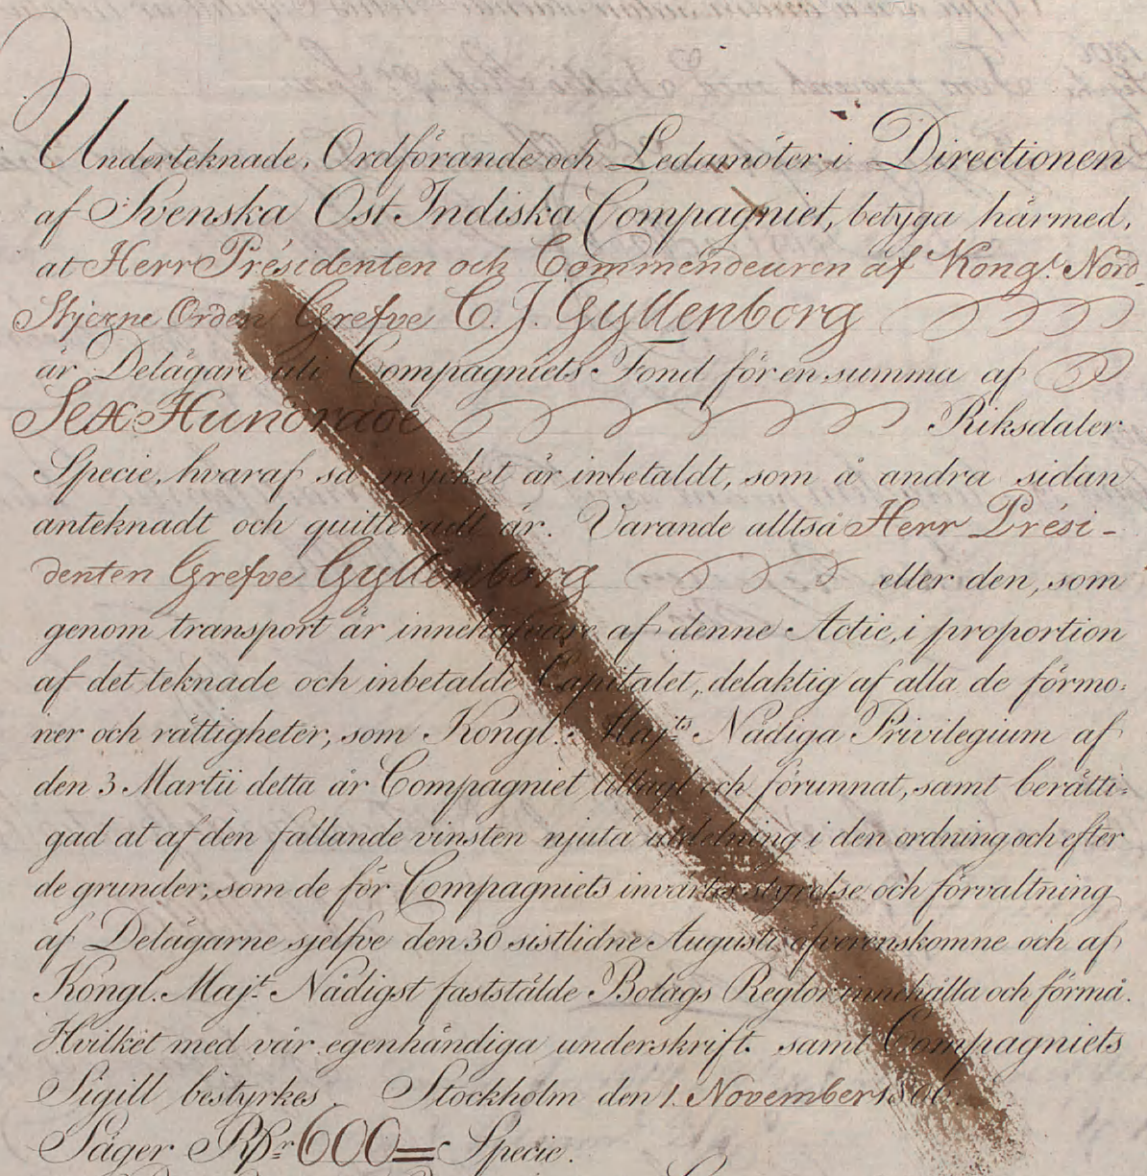 Underteknade, Ordförande och Ledamöter i Directionen
af Svenska Ost Indiska Compagniet, betyga härmed,
at Herr Présidenten och Commendeuren af Kongl. Nord
Stjerne Orden Grefve C. J. Gyllenborg
är Delägare uti Compagniets Fond för en summa af
Sex Hundrade Riksdaler
Specie, hvaraf så mycket är inbetaldt, som å andra sidan
anteknadt och quitteradt är. Varande alltså Herr Prési-
denten Grefve Gyllenborg eller den, som
genom transport är innehafvare af denne Actie, i proportion
af det teknade och inbetalde Capitalet, delaktig af alla de förmo:
ner och rättigheter, som Kongl. Maj:ts Nådiga Privilegium af
den 3 Martii detta år Compagniet tillagt och förunnat, samt berätti:
gad at af den fallande vinsten njuta utdelning i den ordning och efter
de grunder, som de för Compagniets invärtes styrelse och förvaltning
af Delägarne sjelfve den 30 sistlidne Augusti öfverenskomne och af
Kongl. Maj:t Nådigst faststälde Bolags Reglor innehålla och förmå.
Hvilket med vår egenhändiga underskrift samt Compagniets
Sigill bestyrkes. Stockholm den 1. November 1806.
Säger Rdr 600 = Specie.